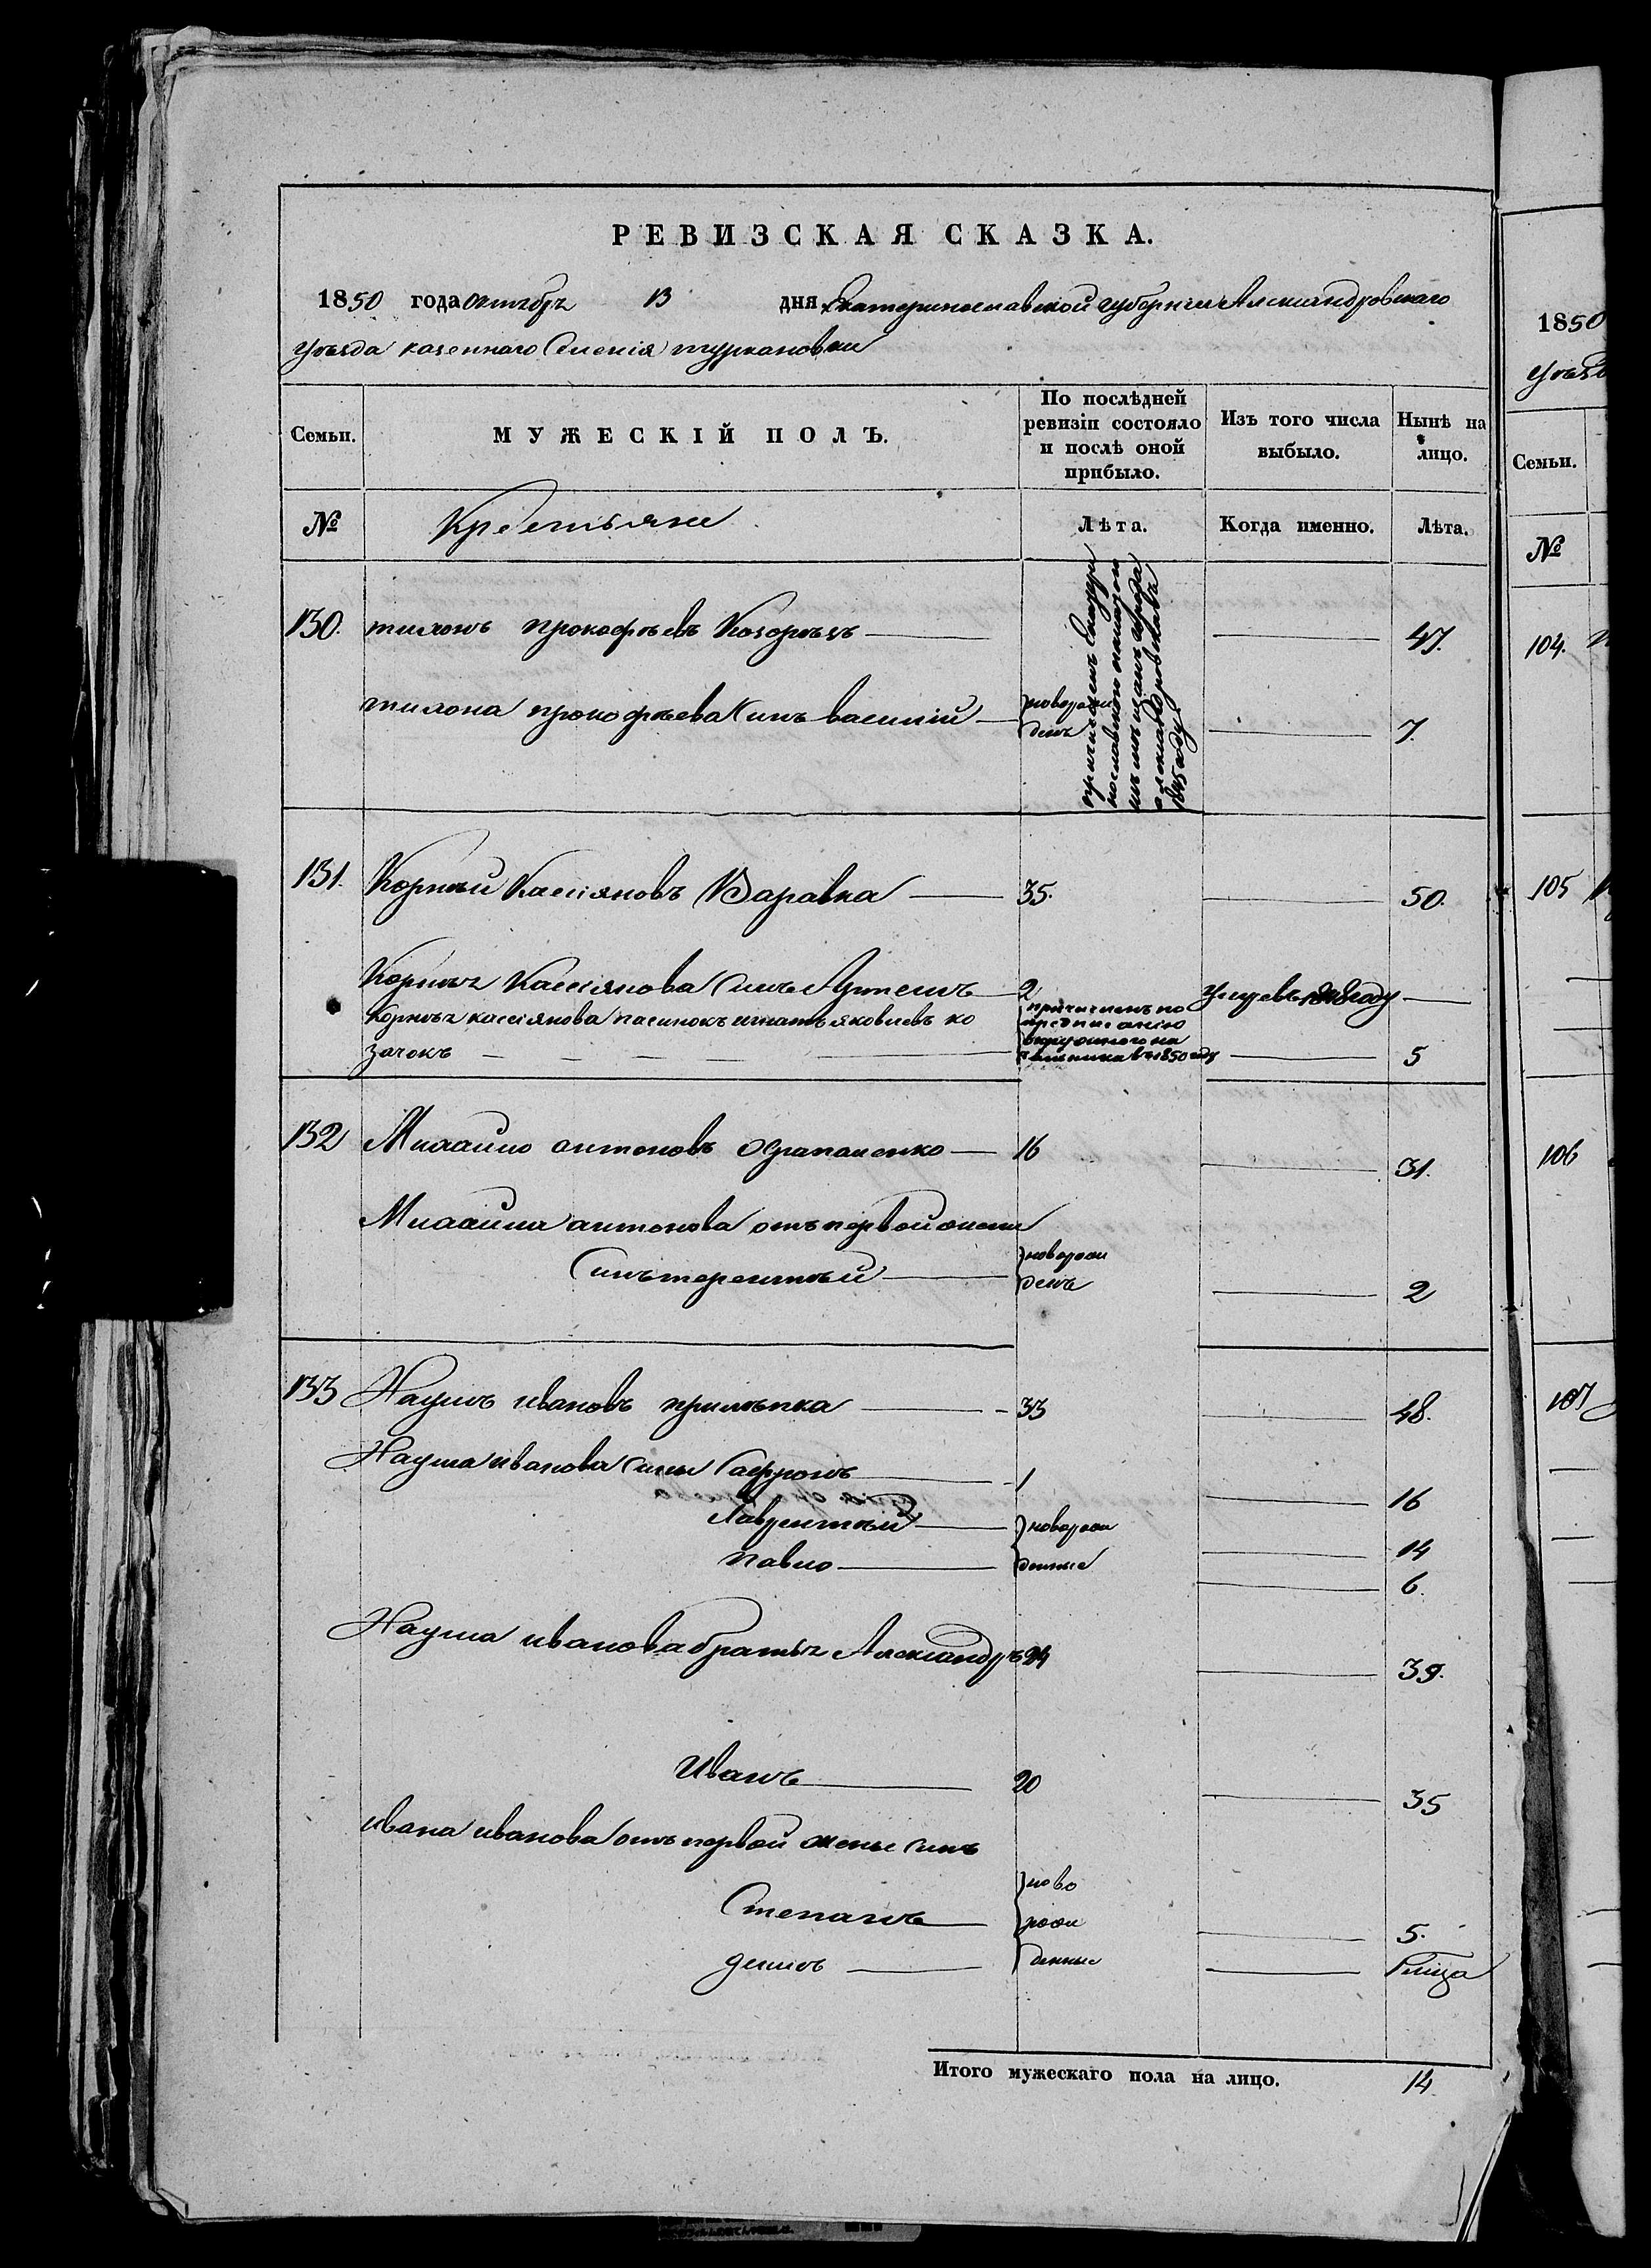 РЕВИЗСКАЯ СКАЗКА.
1850 года октября 13 дня Екатеринославской губерніи Александровскаго
уѣзда казеннаго Селенія туркановки
Семьи.
МУЖЕСКІЙ ПОЛЪ.
По послѣдней
ревизіи состояло
и послѣ оной
прибыло.
Изъ того числа
выбыло.
Нынѣ на
лицо.
№
Крестьяне
Лѣта.
Когда именно.
Лѣта.
130. тихонъ прокофьевъ 47.
тихона прокофьева Сынъ василій новорож
денъ 7.
1845 году
131. Корнѣй Кассіяновъ Варавка 35. 50.
Корнѣя Кассіянова Сынъ Артемъ 2 умеръ въ 1848 году
Корнѣя кассіянова пасынокъ игнатъ яковлевъ ко
зачокъ 5
причисленъ по
предписанію
окружнаго на
чальника въ 1850 году
132 Михайло антоновъ 16 31.
Михайла антонова отъ первой жены
Сынъ терентѣй новорож
денъ 2
133 Наумъ ивановъ прилѣпка 33 48.
Наума иванова Сыны Сафронъ 1 16
Лаврентѣй новорож 14
павло денные 6.
Наума иванова братья Александръ 24 39.
Иванъ 20 35
ивана иванова отъ первой жены сынъ
Степанъ ново
рож
5.
денные
Итого мужескаго пола на лицо. 14
1850
уѣзд
Семьи.
№
104.
105
106
107